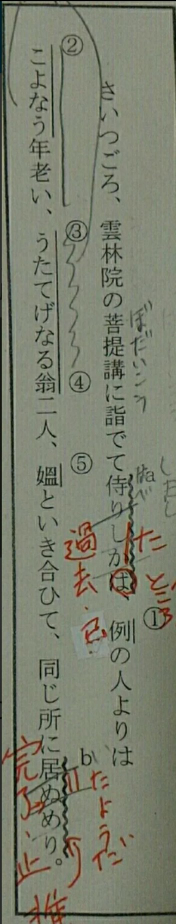 さいつごろ、雲林院の菩提講に詣でて侍りしかば、例の人よりは
こよなう年老い、うたてげなる翁二人、媼といき合ひて、同じ所に居ぬめり。
①
②
③
④
⑤
b
ぼだいこう
たところ
過去・已
たようだ
完了・止
推